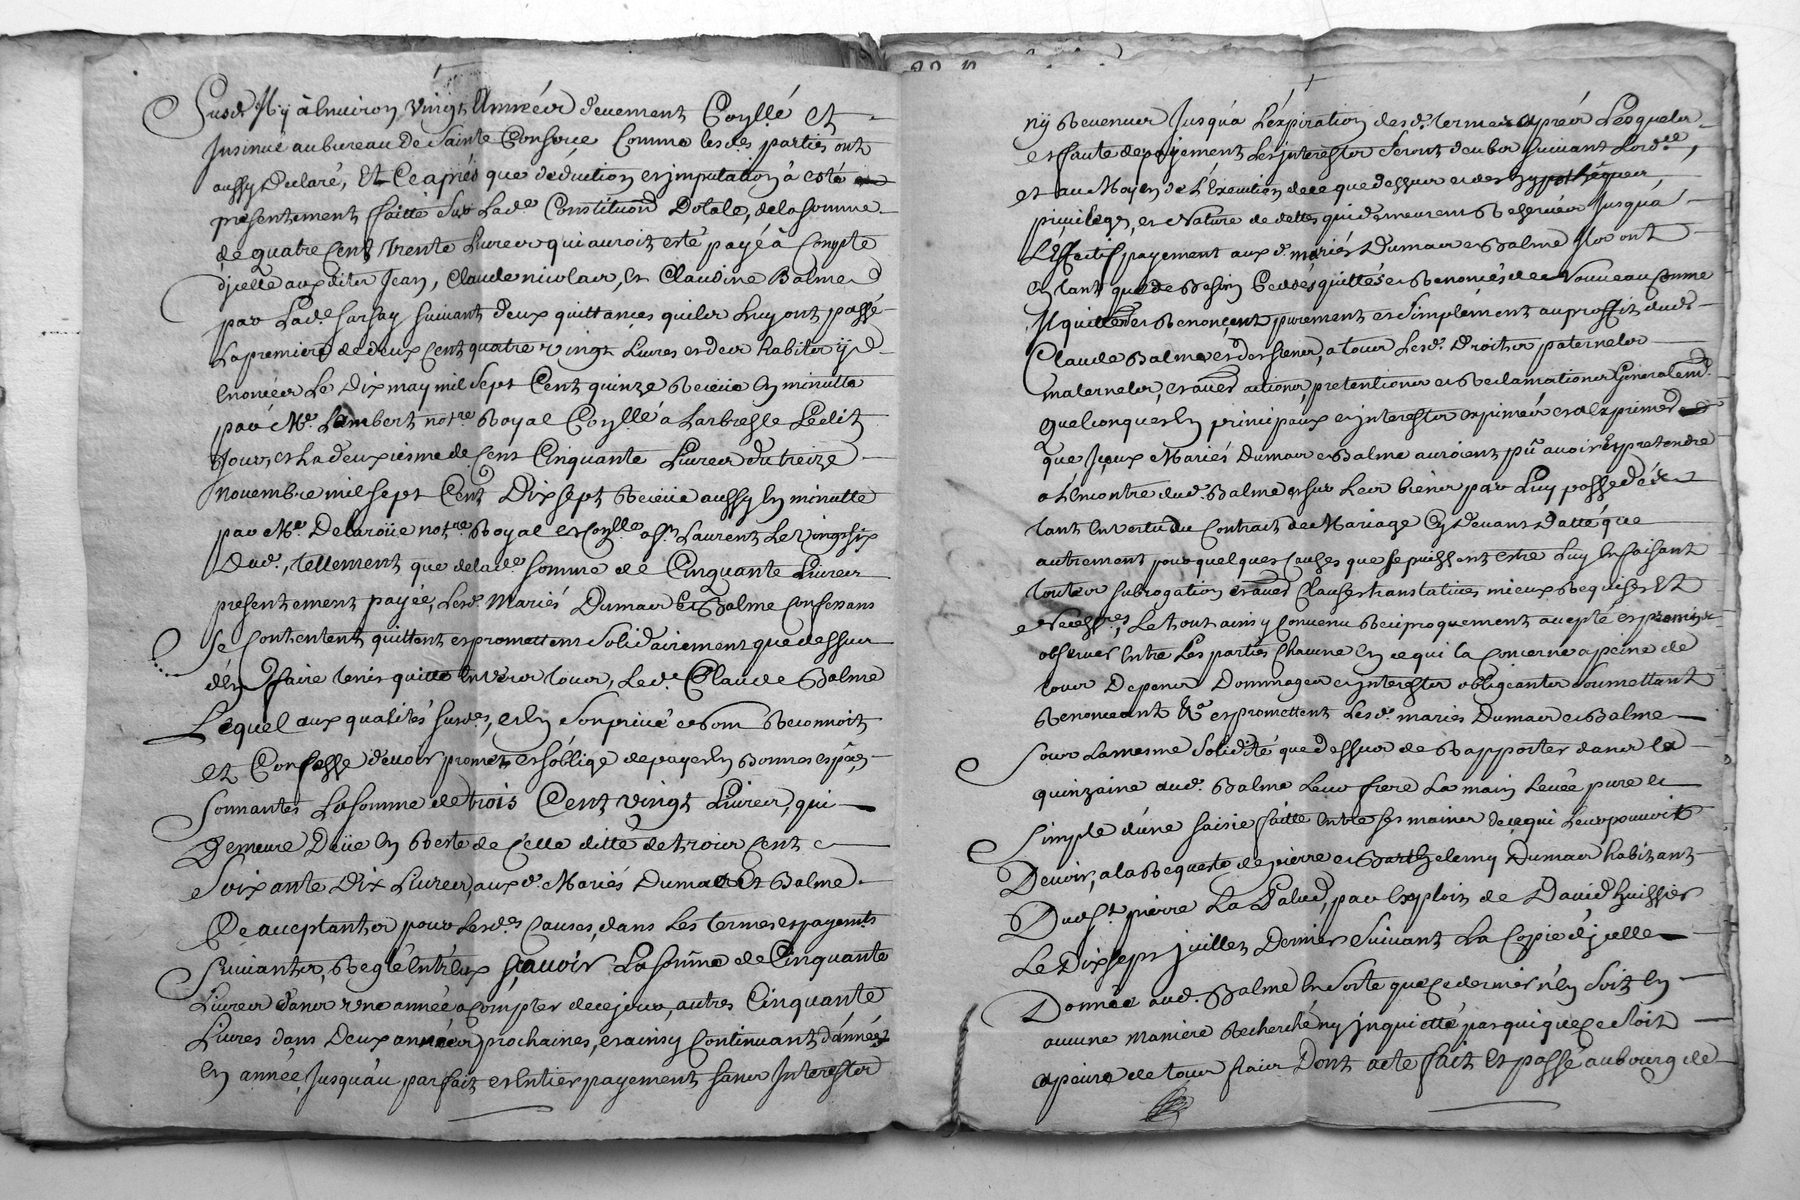 Susd. Il y à lenuiron vingt Années deuement Coñllé et
Insinué au bureau de Sainte Consorce Comme lesdes parties ont
aussy Declaré, Et Ce aprés que déduction et imputation à esté
presentement faitte sur Lade Constituon Dotale, de la somme
de quatre cent trente Liures qui auroit esté payé à Compte
d'jcelle auxdites Jean, Claude nicolas, et Claudine Balme
par Lad. Sarsay suiuant deux quittances quiles luy ont passé
La premiere de deux cent quatre vingt Liures
Enoncées Le Dix may mil sept Cent quinze Reçeüe En minutte
par Me. Lambert notre Royal Coñllé à Larbresle Ledit
Jour, et La deuxiesme de Cent Cinquante Liures du treize
nouembre mil sept Cent Dix sept Reçeüe aussy En minutte
par Me. Delaroüe notre Royal et Coñlle a St. Laurent Le vingt six
Dud., tellement que delade somme de Cinquante Liures
presentement payée, Lesd. Mariés Dumas Et Balme Confessans
Se Contentent quittent et promettent Solidairement que dessus
d'En faire tenir quitte Enuers tous, Led. Claude Balme
Lequel aux qualités susdes, et En son priué et nom Reconnoit
et Confesse deuoir promet et s'oblige de payer En Bonnes espes
Sonnantes La somme de trois Cent vingt Liures, qui
Demeure Deüe En Reste de Celle ditte de trois Cent
Soixante Dix Liures, auxd. Mariés Dumas Et Balme
Ce acceptantes pour Lesdes Causes, dans Les termes et payemts
Suiuantes, Reglé Entr'eux sçauoir La somme de Cinquante
Liures dans vne année a compter de ce jour, autres Cinquante
Liures dans Deux années prochaines, et ainsy Continuant d'année
En année, Jusqu'au parfait et Entier payement sans Interestes
ny Reuenues Jusqu'a L'expiration desd. termes apres Lesquels
et faute de payement Les jnterestes seront deubes suiuant Lordce,
et au Moyen de L'Execution de ce que dessus et des hypotheques,
priuileges, et Nature de dettes qui demeurent Reseruées Jusqua
L'Effectif payement auxd. mariés Dumas et Balme Ils ont
En tant que de Besoin Cedés quittés et Renoncés et de Nouueau Comme
Ils quittent et Renonçent purement et simplement au proffit dud.
Claude Balme et des siens, a tous Lesd. Droites paternels
maternels, et autres actions, pretentions et Reclamations Generalemt.
quelconques En principaux et jnterestes exprimées et a Exprimer
que Jceux Mariés Dumas et Balme auroient pû auoir et pretendre
a L'Encontre dud. Balme et sur Les biens par Luy possedés
tant En vertu du Contrat de Mariage Cy Deuant Datté que
autrement pour quelques Causes que se puissent estre Luy En faisant
toutes subrogation et autres Clauses translatiues mieux Requises Et
Necessres, Le tout ainsy Conuenu Reciproquement accepté et promis
obseruer Entre Les parties Chacune En ce qui la Concerne a peine de
tous Depens Dommages et jnterestes obligeantes soumettant
Renonceant &c et promettent Lesd. mariés Dumas et Balme
Sous La mesme Solidité que dessus de Rapporter dans la
quinzaine aud. Balme Leur frere La main Leuée pure et
Simple d'une saisie faitte Entre ses maines de ce qui Leur pouuoit
Deuoir, a la Requeste de pierre et Barthelemy Dumas habitant
Dud. St. pierre La Palud, par Exploit de Dauid huissier
Le Dix sept juillet Dernier suiuant La Copie d'jcelle
Donnée aud. Balme En sorte que ce dernier n'En soit En
aucune maniere Recherché ny jnquietté par qui que ce soit
a peine de tous fraix Dont acte fait Et passé au bourg de